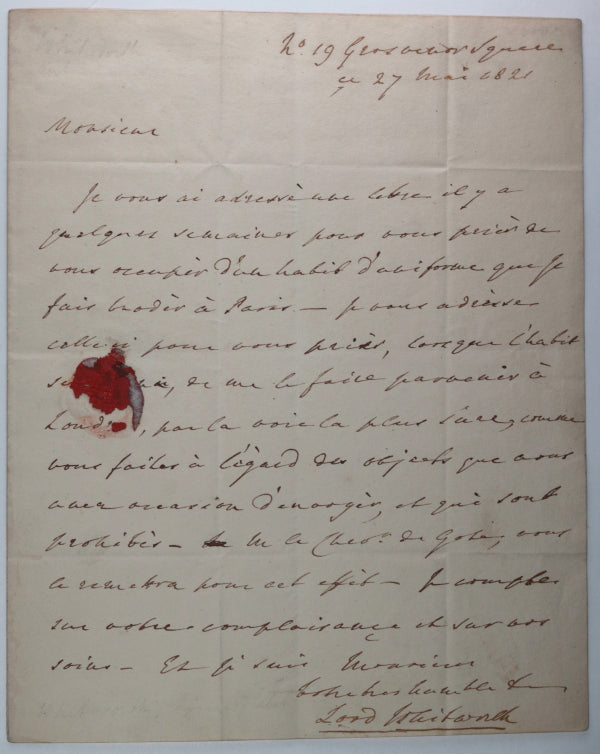 No. 19 Grosvenor Square
ce 27 Mai 1821
Monsieur
Je vous ai adressè une lettre il y a
quelques semaines pour vous prièr de
vous occupèr d'un habit d'uniforme que je
fais brodèr à Paris — Je vous adresse
celle ci pour vous prièr, lorsque l'habit
de me le faire parvenir à
Lond, par la voie la plus sure, comme
vous faites à l'égard des objects que vous
avez occasion d'envoyèr, et qui sont
prohibès — M le Chevr. de vous
le remettra pour cet effêt — Je compte
sur votre complaisance et sur vos
soins — Et je suis Monsieur
votre tres humble &
Lord Whitworth